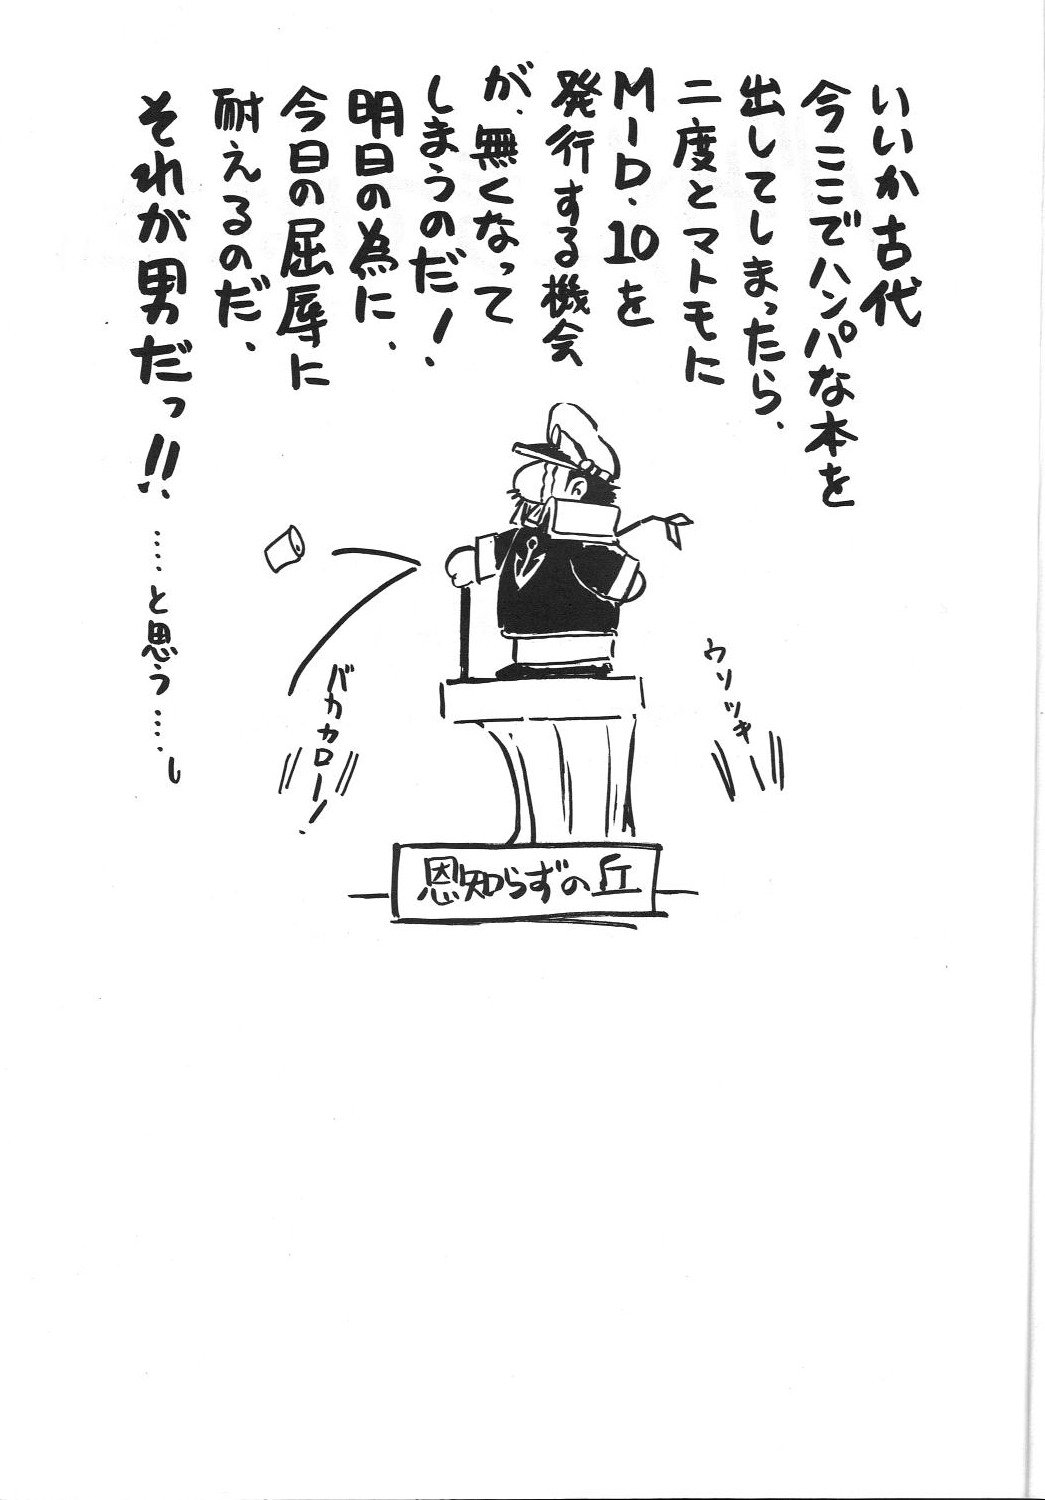 いいか古代
今ここでハンパな本を
出してしまったら、
二度とマトモに
M-D.10を
発行する機会
が、無くなって
しまうのだ!、
明日の為に、
今日の屈辱に
耐えるのだ、
それが男だっ!!……と思う…。し
ウソツキ
バカカロー!
恩知らずの丘